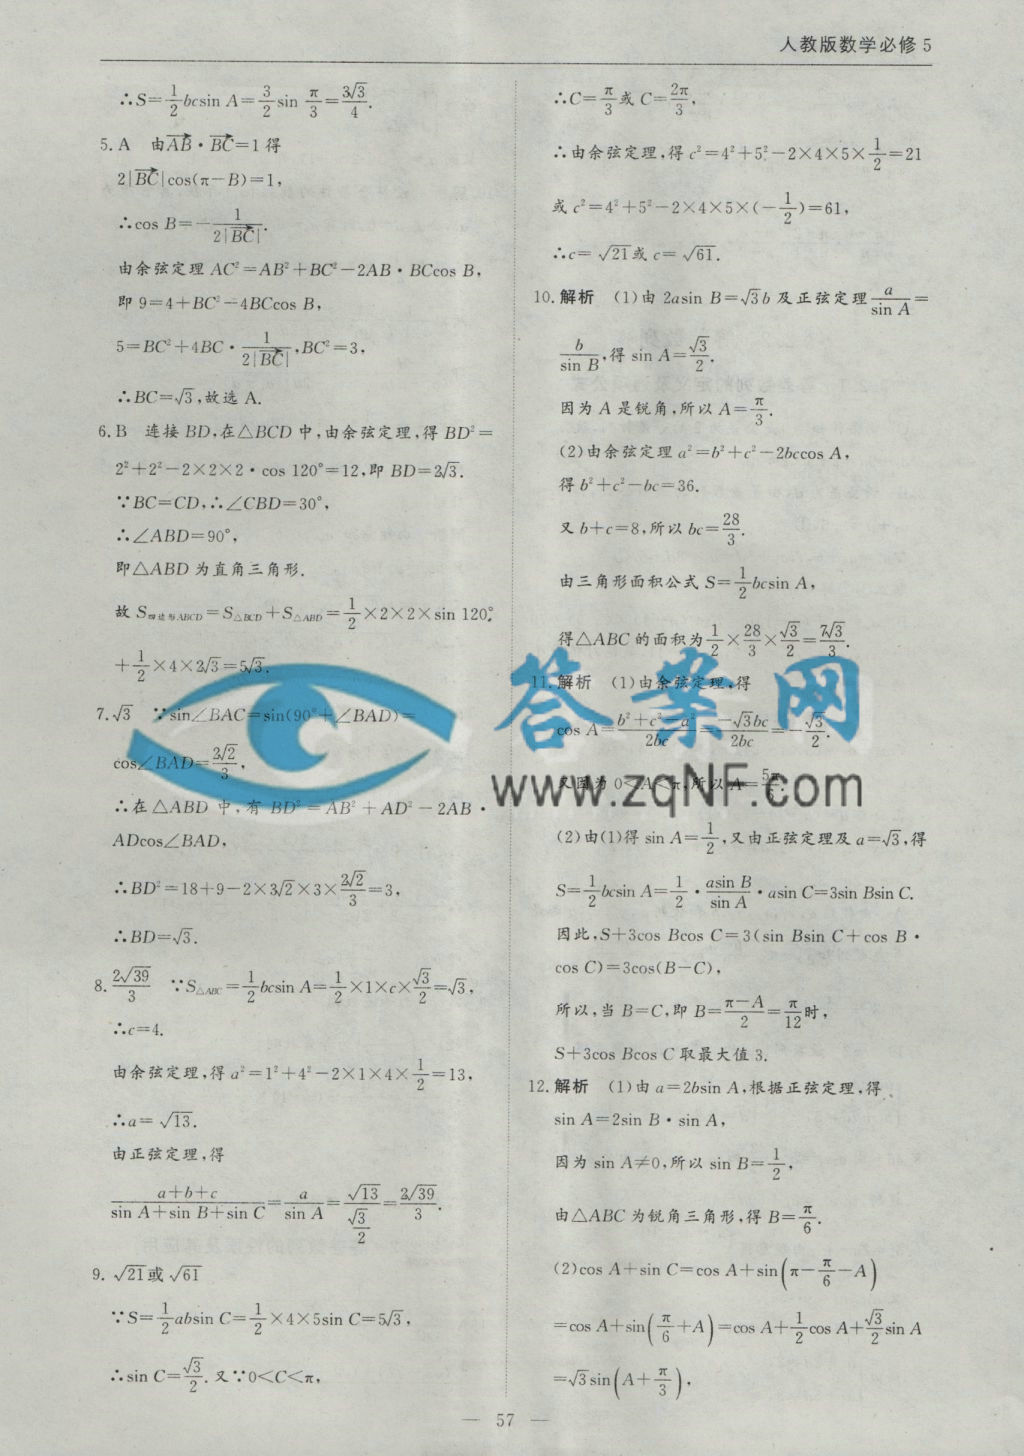 人教版数学必修5
∴S=1/2 bcsin A=3/2 sin π/3=3√3/4.
5. A 由AB·BC=1得
2|BC|cos(π-B)=1,
∴cos B=-1/(2|BC|).
由余弦定理AC²=AB²+BC²-2AB·BCcos B,
即9=4+BC²-4BCcos B,
5=BC²+4BC·1/(2|BC|),BC²=3,
∴BC=√3,故选A.
6. B 连接BD,在△BCD中,由余弦定理,得BD²=
2²+2²-2×2×2·cos 120°=12,即BD=2√3.
∵BC=CD,∴∠CBD=30°,
∴∠ABD=90°,
即△ABD为直角三角形.
故S四边形ABCD=S△BCD+S△ABD=1/2×2×2×sin 120°
+1/2×4×2√3=5√3.
7. √3 ∵sin∠BAC=sin(90°+∠BAD)=
cos∠BAD=2√2/3,
∴在△ABD中,有BD²=AB²+AD²-2AB·
ADcos∠BAD,
∴BD²=18+9-2×3√2×3×2√2/3=3,
∴BD=√3.
8. 2√39/3 ∵S△ABC=1/2 bcsin A=1/2×1×c×√3/2=√3,
∴c=4.
由余弦定理,得a²=1²+4²-2×1×4×1/2=13,
∴a=√13.
由正弦定理,得
(a+b+c)/(sin A+sin B+sin C)=a/sin A=√13/(√3/2)=2√39/3.
9. √21或√61
∵S=1/2 absin C=1/2×4×5sin C=5√3,
∴sin C=√3/2.又∵0<C<π,
∴C=π/3或C=2π/3,
∴由余弦定理,得c²=4²+5²-2×4×5×1/2=21
或c²=4²+5²-2×4×5×(-1/2)=61,
∴c=√21或c=√61.
10. 解析 (1)由2asin B=√3b及正弦定理a/sin A=
b/sin B,得sin A=√3/2.
因为A是锐角,所以A=π/3.
(2)由余弦定理a²=b²+c²-2bccos A,
得b²+c²-bc=36.
又b+c=8,所以bc=28/3.
由三角形面积公式S=1/2 bcsin A,
得△ABC的面积为1/2×28/3×√3/2=7√3/3.
11. 解析 (1)由余弦定理,得
cos A=(b²+c²-a²)/2bc=-√3bc/2bc=-√3/2.
又因为0<A<π,所以A=5π/6.
(2)由(1)得sin A=1/2,又由正弦定理及a=√3,得
S=1/2 bcsin A=1/2·asin B/sin A·asin C=3sin Bsin C.
因此,S+3cos Bcos C=3(sin Bsin C+cos B·
cos C)=3cos(B-C),
所以,当B=C,即B=(π-A)/2=π/12时,
S+3cos Bcos C取最大值3.
12. 解析 (1)由a=2bsin A,根据正弦定理,得
sin A=2sin B·sin A,
因为sin A≠0,所以sin B=1/2,
由△ABC为锐角三角形,得B=π/6.
(2)cos A+sin C=cos A+sin(π-π/6-A)
=cos A+sin(π/6+A)=cos A+1/2 cos A+√3/2 sin A
=√3sin(A+π/3),
答案网
www.zqNF.com
— 57 —